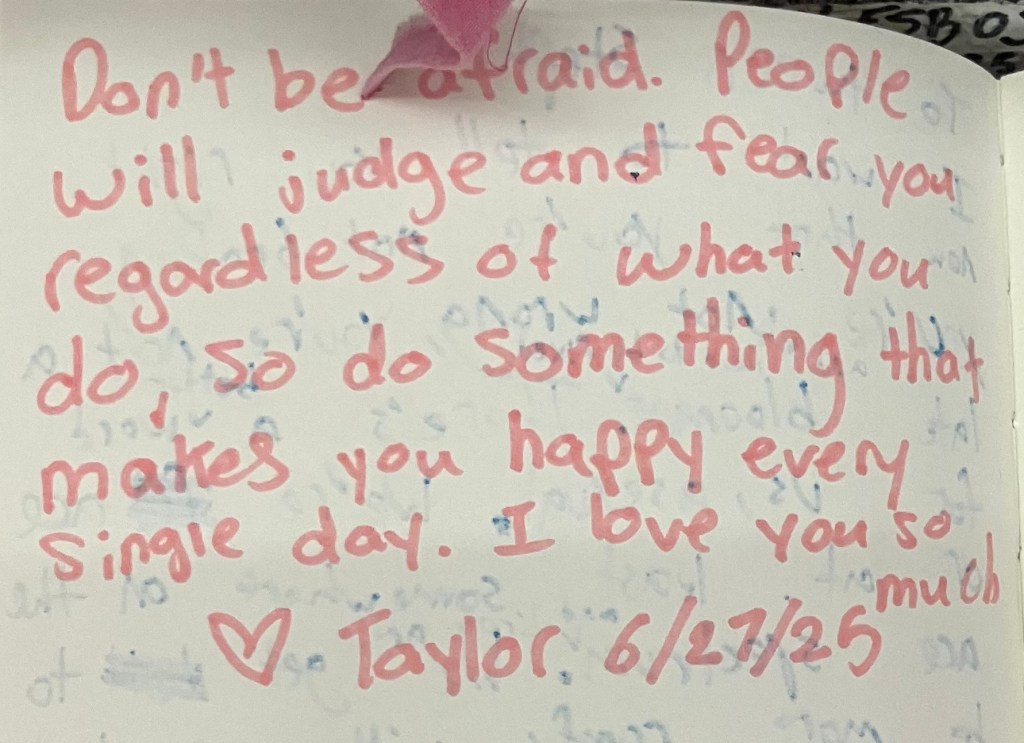 Don't be afraid. People
will judge and fear you
regardless of what you
do, so do something that
makes you happy every
single day. I love you so
much
♡ Taylor 6/27/25